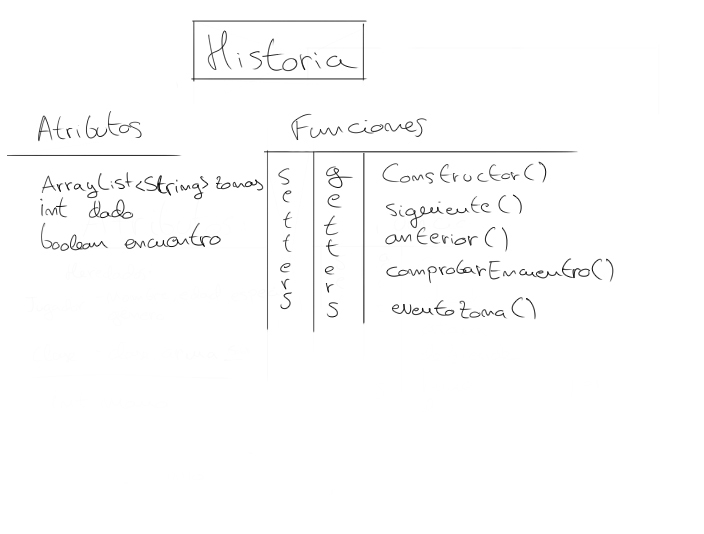 Historia
Atributos
Funciones
ArrayList<String> zonas
int dado
boolean encuentro
setters
getters
Constructor()
siguiente()
anterior()
comprobarEncuentro()
eventoZona()